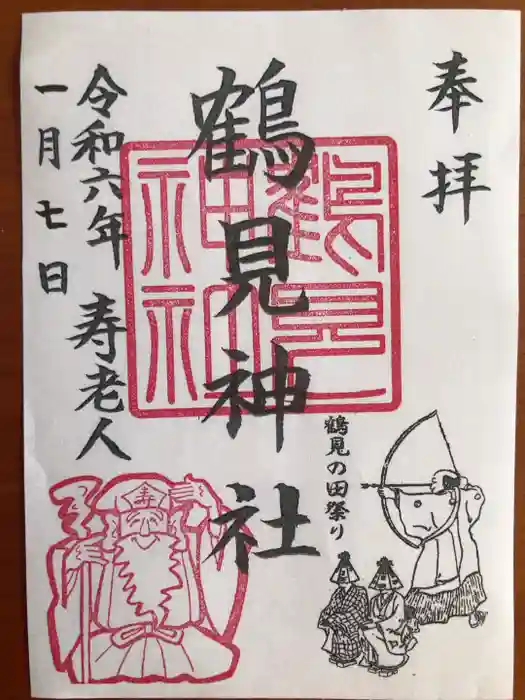 奉拝
鶴見神社
鶴見神社
令和六年
寿老人
一月七日
鶴見の田祭り
寿